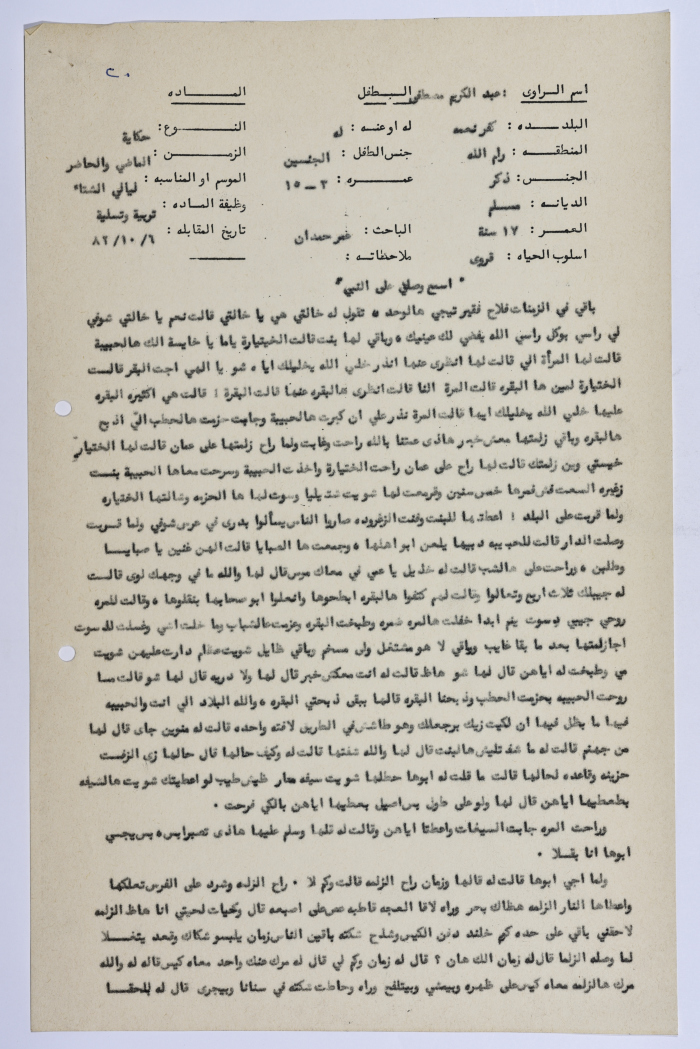 ٣٠
اسم الراوى : عبد الكريم مصطفى
البلده : كفر نعمه
المنطقه : رام الله
الجنس : ذكر
الديانه : مسلم
العمر : ١٧ سنة
اسلوب الحياه : قروى
الطفل
له او عنه : له
جنس الطفل : الجنسين
عمره : ٣ - ١٥
الباحث : عمر حمدان
ملاحظاته :
الماده
النوع : حكاية
الزمن : الماضي والحاضر
الموسم او المناسبه : ليالي الشتاء
وظيفة الماده : تربية وتسلية
تاريخ المقابله : ٨٢/١٠/٦
" اسمع وصلي على النبي "
باقي في الزمنات فلاح فقير تيجي هالوحده تقول له خالتي هي يا خالتي قالت نعم يا خالتي شوفي
لي راسي بوكل راسي الله يخلي لك عينيك وباقي لها بنت قالت الختيارة ياما يا خايسة الك هالحبيبة
قالت لها المرأة الي قالت لها انظرى عنها انذر خلي الله يخليلك اياه شو يا الهي اجت البقر قالست
الختيارة لمين ها البقره قالت المرة النا قالت انظرى هالبقره عنها قالت البقرة ! قالت هي اكثيره البقره
عليها خلي الله يخليلك اياها قالت المرة نذر علي ان كبرت هالحبيبة وجابت حزمت هالحطب الّي اذبح
هالبقره وباقي زلمتها معش خبر هاذى عمتنا بالله راحت وغابت ولما راح زلمتها على عمان قالت لها الختيار
خيستي وين زلمتك قالت لها راح على عمان راحت الختيارة واخذت الحبيبة وسرحت معاها الحبيبة بنت
زغيره عمرها خمس سنين وقرمعت لها شويت وسوت لها ها الحزمه وشالتها الختياره
ولما قربت على البلد ! اعطتها للبنت وغنت الزغروده صاروا الناس يسألوا بدرى في عرس شوفي ولما تسريت
وصلت الدار قالت للحبيبه دبيها يلعن ابو اهلها وجمعت ها الصبايا قالت الهن غنين يا صبايا
وطلبن وراحت على هالشب قالت له خليل يا عمي في معاك موس قال لها والله ما في وجهك لوى قالست
له جيبلك ثلاث اربع وتعالوا وقالت لهم كتفوا هالبقره ابطحوها وانحلوا ابو صحابها بنقلوها وقالت للمره
روحي جيبي دسوت ينم ابدا خفلت هالمره غمره وطبخت البقره وعزمت هالشباب وما خلت اشي وغسلت للدسوت
اجا زلمتها بعد ما بقا غايب وباقي لا هو مشتغل ولى مسخم وباقي ظايل شويت عظام دارت عليهن شويت
مي وطبخت له اياهن قال لها شو هاظ قالت له انت معكش خبر قال لها ولا دريه قال لها شو قالت مسا
روحت الحبيبه بحزمت الحطب وذبحنا البقره قالها ببقى ذبحتي البقره والله البلاد الي انت والحبيبه
فيها ما بظل فيها ان لكيت زيك برجعلك وهو طاشش في الطريق لاقته واحده قالت له منوين جاى قال لها
من جهنم قالت له ما شفتليش هالبنت قال لها والله شفتها قالت له وكيف حالها قال حالها زى الزفست
حزينه وقاعده لحالها قالت ما قلت له ابوها حطلها شويت سيغه معار ظيش طيب لو اعطيتك شويت هالسيغه
بطعطيها اياهن قال لها ولو على طول بس اصيل بعطيها اياهن بالكي فرحت .
وراحت المره جابت السيغات واعطتا اياهن وقالت له تلها وسلم عليها هاذى تصبرا بس بس يجي
ابوها انا بقسلا .
ولما اجى ابوها قالت له قالها وزمان راح الزلمه قالت وكم لا . راح الزلمه وشرد على الفرس تعلكها
واعطاها النار الزلمه هظاك بحر وراه لاقا العجه قاطبه عص على اصبعه قال وخيات لحيتي انا هاظ الزلمه
لاحقني باقي على حده كرم خلند دفن الكيس وشلح شكته باقين الناس زمان يلبسو شكاك وقعد يتفلا
لما وصله الزلما قال له زمان الك هان ؟ قال له زمان وكم لي قال له مرك عنك واحد معاه كيس قاله له والله
مرك هالزلمه معاه كيس على ظهره وبيمشي وبيتلفح وراه وحاطت شكته في سنانا وبيجرى قال له بلحقا